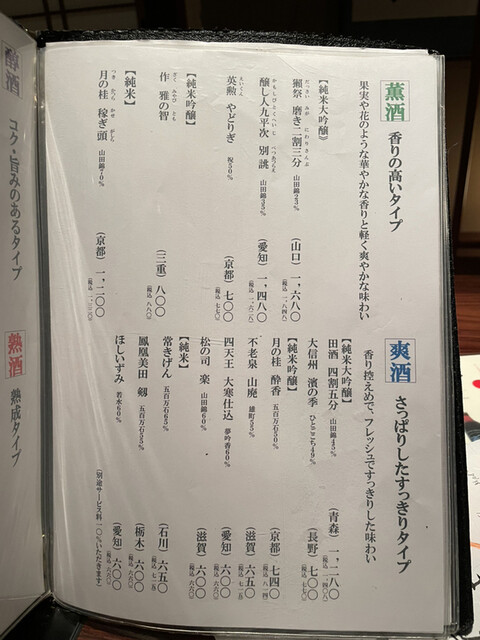 薫酒 香りの高いタイプ
果実や花のような華やかな香りと軽く爽やかな味わい
【純米大吟醸】
獺祭 磨き二割三分 山田錦23% （山口） 一、六八〇（税込 一、八四八）
醸し人九平次 別誂 山田錦35% （愛知） 一、四八〇（税込 一、六二八）
英勲 やどりぎ 祝50% （京都） 七〇〇（税込 七七〇）
【純米吟醸】
作 雅の智 （三重） 八〇〇（税込 八八〇）
【純米】
月の桂 稼ぎ頭 山田錦70% （京都） 一、二〇〇（税込 一、三二〇）
爽酒 さっぱりしたすっきりタイプ
香り控えめで、フレッシュですっきりした味わい
【純米大吟醸】
田酒 四割五分 山田錦45% （青森） 一、二八〇（税込 一、四〇八）
大信州 濱の季 ひとごこち49% （長野） 七〇〇（税込 七七〇）
【純米吟醸】
月の桂 酔香 五百万石50% （京都） 七四〇（税込 八一四）
不老泉 山廃 雄町55% （滋賀） 六五〇（税込 七一五）
四天王 大寒仕込 夢吟香60% （愛知） 六〇〇（税込 六六〇）
松の司 楽 山田錦60% （滋賀） 六〇〇（税込 六六〇）
【純米】
常きげん 五百万石65% （石川） 六五〇（税込 七一五）
鳳凰美田 剱 五百万石55% （栃木） 六〇〇（税込 六六〇）
ほしいずみ 若水60% （愛知） 六〇〇（税込 六六〇）
（別途サービス料一〇％いただきます）
醇酒 コク・旨みのあるタイプ
熟酒 熟成タイプ